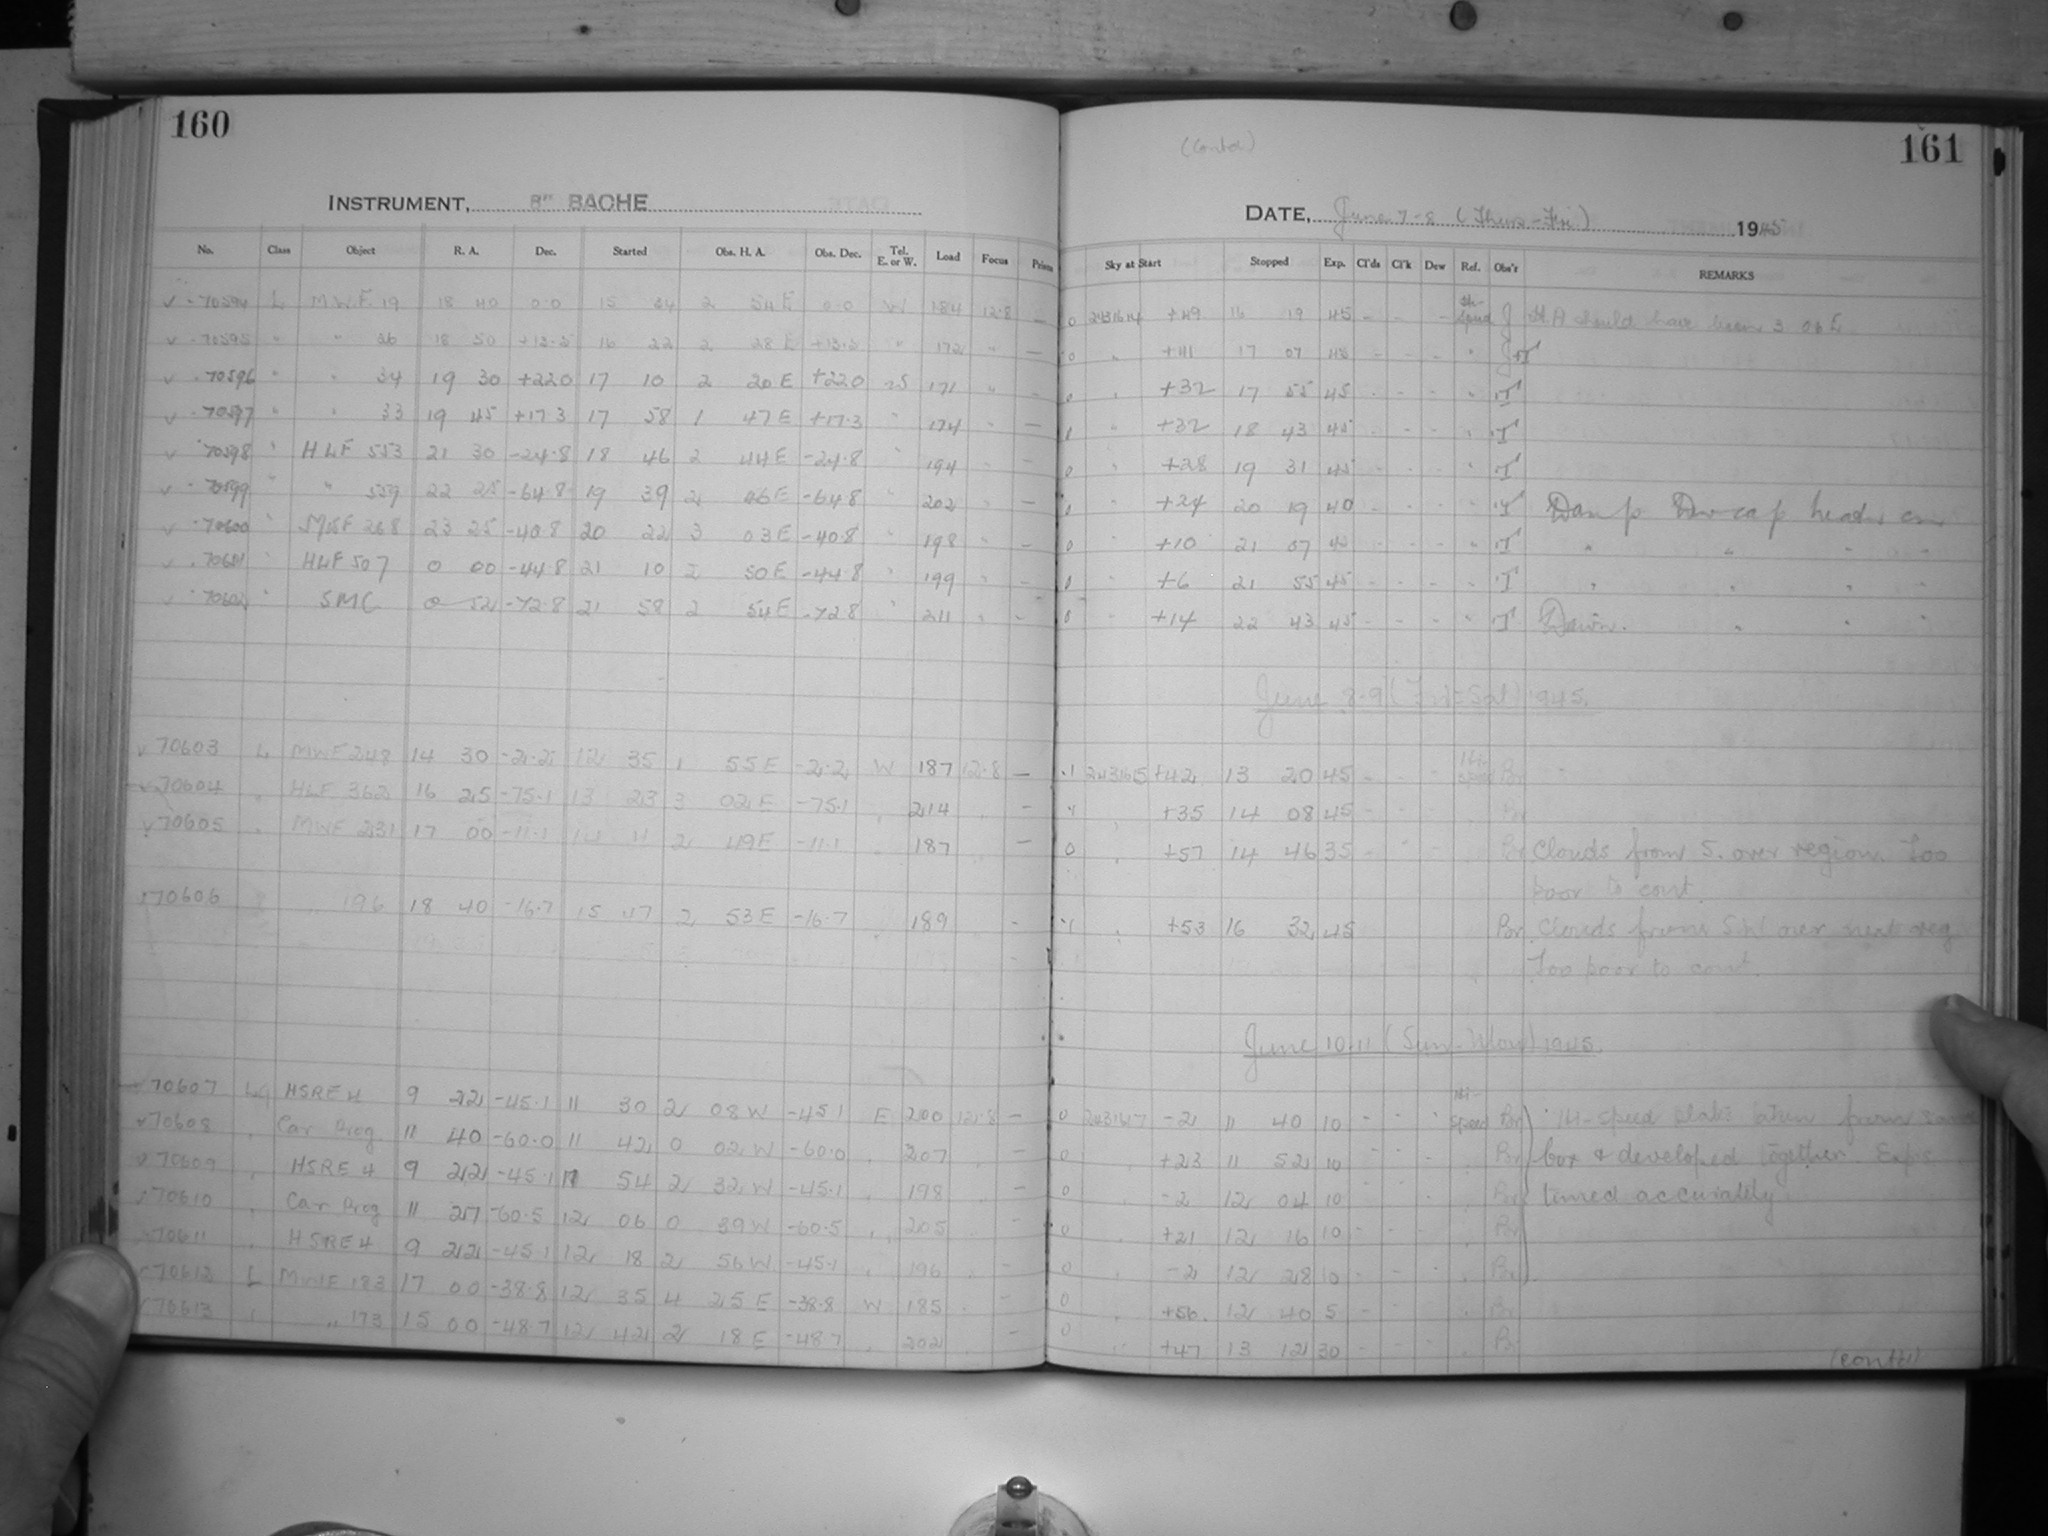 160
INSTRUMENT, 8" BACHE
No. Class Object R. A. Dec. Started Obs. H. A. Obs. Dec. Tel. E. or W. Load Focus Prism
70594 L MWF 19 18 40 0.0 15 34 2 54 E 0.0 W 184 12.8 —
70595 " " 26 18 50 +13.2 16 22 2 28 E +13.2 " 172 " —
70596 " " 34 19 30 +22.0 17 10 2 20 E +22.0 171 " —
70597 " " 33 19 45 +17.3 17 58 1 47 E +17.3 " 174 " —
70598 " HLF 553 21 30 -24.8 18 46 2 44 E -24.8 " 194 " —
70599 " " 559 22 25 -64.8 19 39 2 06 E -64.8 " 202 " —
70600 " 268 23 25 -40.8 20 22 3 03 E -40.8 " 198 " —
70601 " HLF 507 0 00 -44.8 21 10 2 50 E -44.8 " 199 " —
70602 " SMC 0 52 -72.8 21 58 2 54 E -72.8 " 211 " —
70603 L MWF 248 14 30 -2.2 12 35 1 55 E -2.2 W 187 12.8 —
70604 " HLF 362 16 25 -75.1 13 23 3 02 E -75.1 " 214 —
70605 " MWF 231 17 00 -11.1 14 11 2 49 E -11.1 " 187 —
70606 " 196 18 40 -16.7 15 47 2 53 E -16.7 189 -
70607 HSRE 4 9 22 -45.1 11 30 2 08 W -45.1 E 200 12.8 —
70608 " Car Prog 11 40 -60.0 11 42 0 02 W -60.0 " 207 —
70609 " HSRE 4 9 22 -45.1 11 54 2 32 W -45.1 " 198 —
70610 " Car Prog 11 27 -60.5 12 06 0 39 W -60.5 " 205 -
70611 " HSRE 4 9 22 -45.1 12 18 2 56 W -45.1 " 196 -
70612 L MWF 183 17 00 -38.8 12 35 4 25 E -38.8 W 185 -
70613 " " 173 15 00 -48.7 12 42 2 18 E -48.7 " 202 —
161
(Contd)
DATE, June 7-8 (Thurs-Fri) 1945
Sky at Start Stopped Exp. Cl'ds Cl'k Dew Ref. Obs'r REMARKS
0 2431614 +49 16 19 45 - - - Hi-Speed J H.A should have been 3 06 E
0 " +41 17 07 45 - - - " J+T
0 " +32 17 55 45 - - - " T
0 " +32 18 43 45 - - - " T
0 " +28 19 31 45 - - - " T
0 " +24 20 19 40 - - - " T Damp Dewcap heater on
0 " +10 21 07 45 - - - " T " " " "
0 " +6 21 55 45 - - - " T " " " "
0 " +14 22 43 45 - - - " T Dawn. " " "
June 8-9 (Fri-Sat) 1945.
.1 2431615 +42 13 20 45 - - - Hi-speed Br
" +35 14 08 45 - - - Br
0 " +57 14 46 35 - - - Br Clouds from S. over region. Too
poor to cont.
" +53 16 32 45 Br Clouds from SW over next reg
Too poor to cont
June 10-11 (Sun-Mon) 1945.
0 2431617 -2 11 40 10 - - - Hi-Speed Br Hi-speed plates taken from same
0 " +23 11 52 10 - - - " Br box & developed together. Exps
0 " -2 12 04 10 - - - " Br timed accurately
0 " +21 12 16 10 - - - " Br
0 " -2 12 28 10 - - - " Br
0 +56 12 40 5 - - " Br
0 " +47 13 12 30 - - - " Br
(contd)